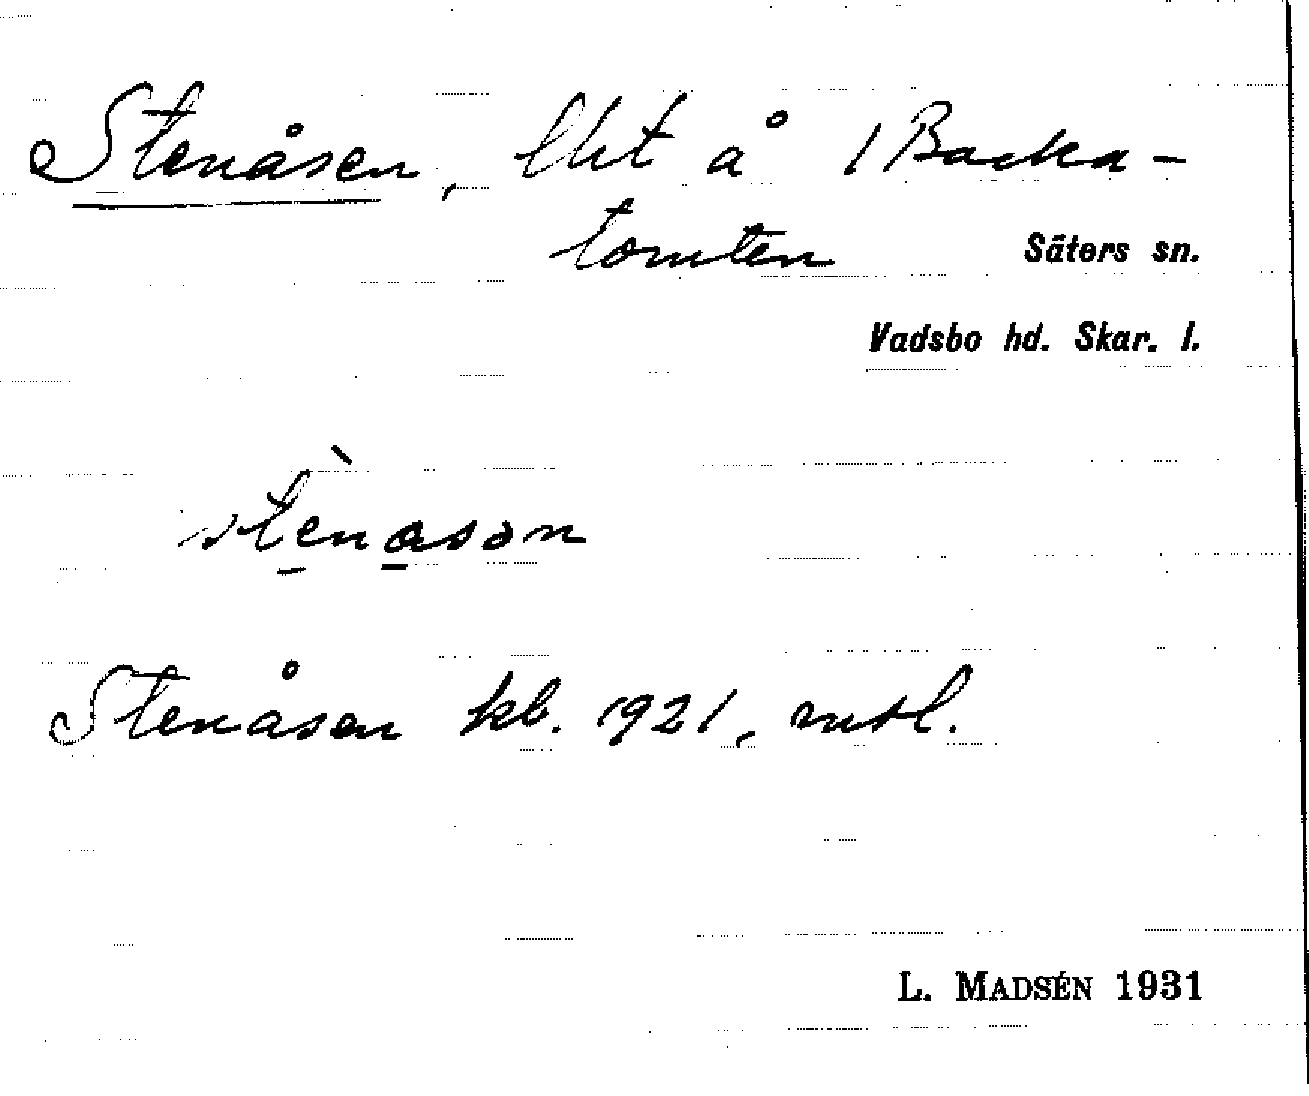 Stenåsen, lht å 1 Backa-
tomten
Säters sn.
Vadsbo hd. Skar. l.
stènåsən
Stenåsen kb. 1921, mtl.
L. MADSÉN 1931